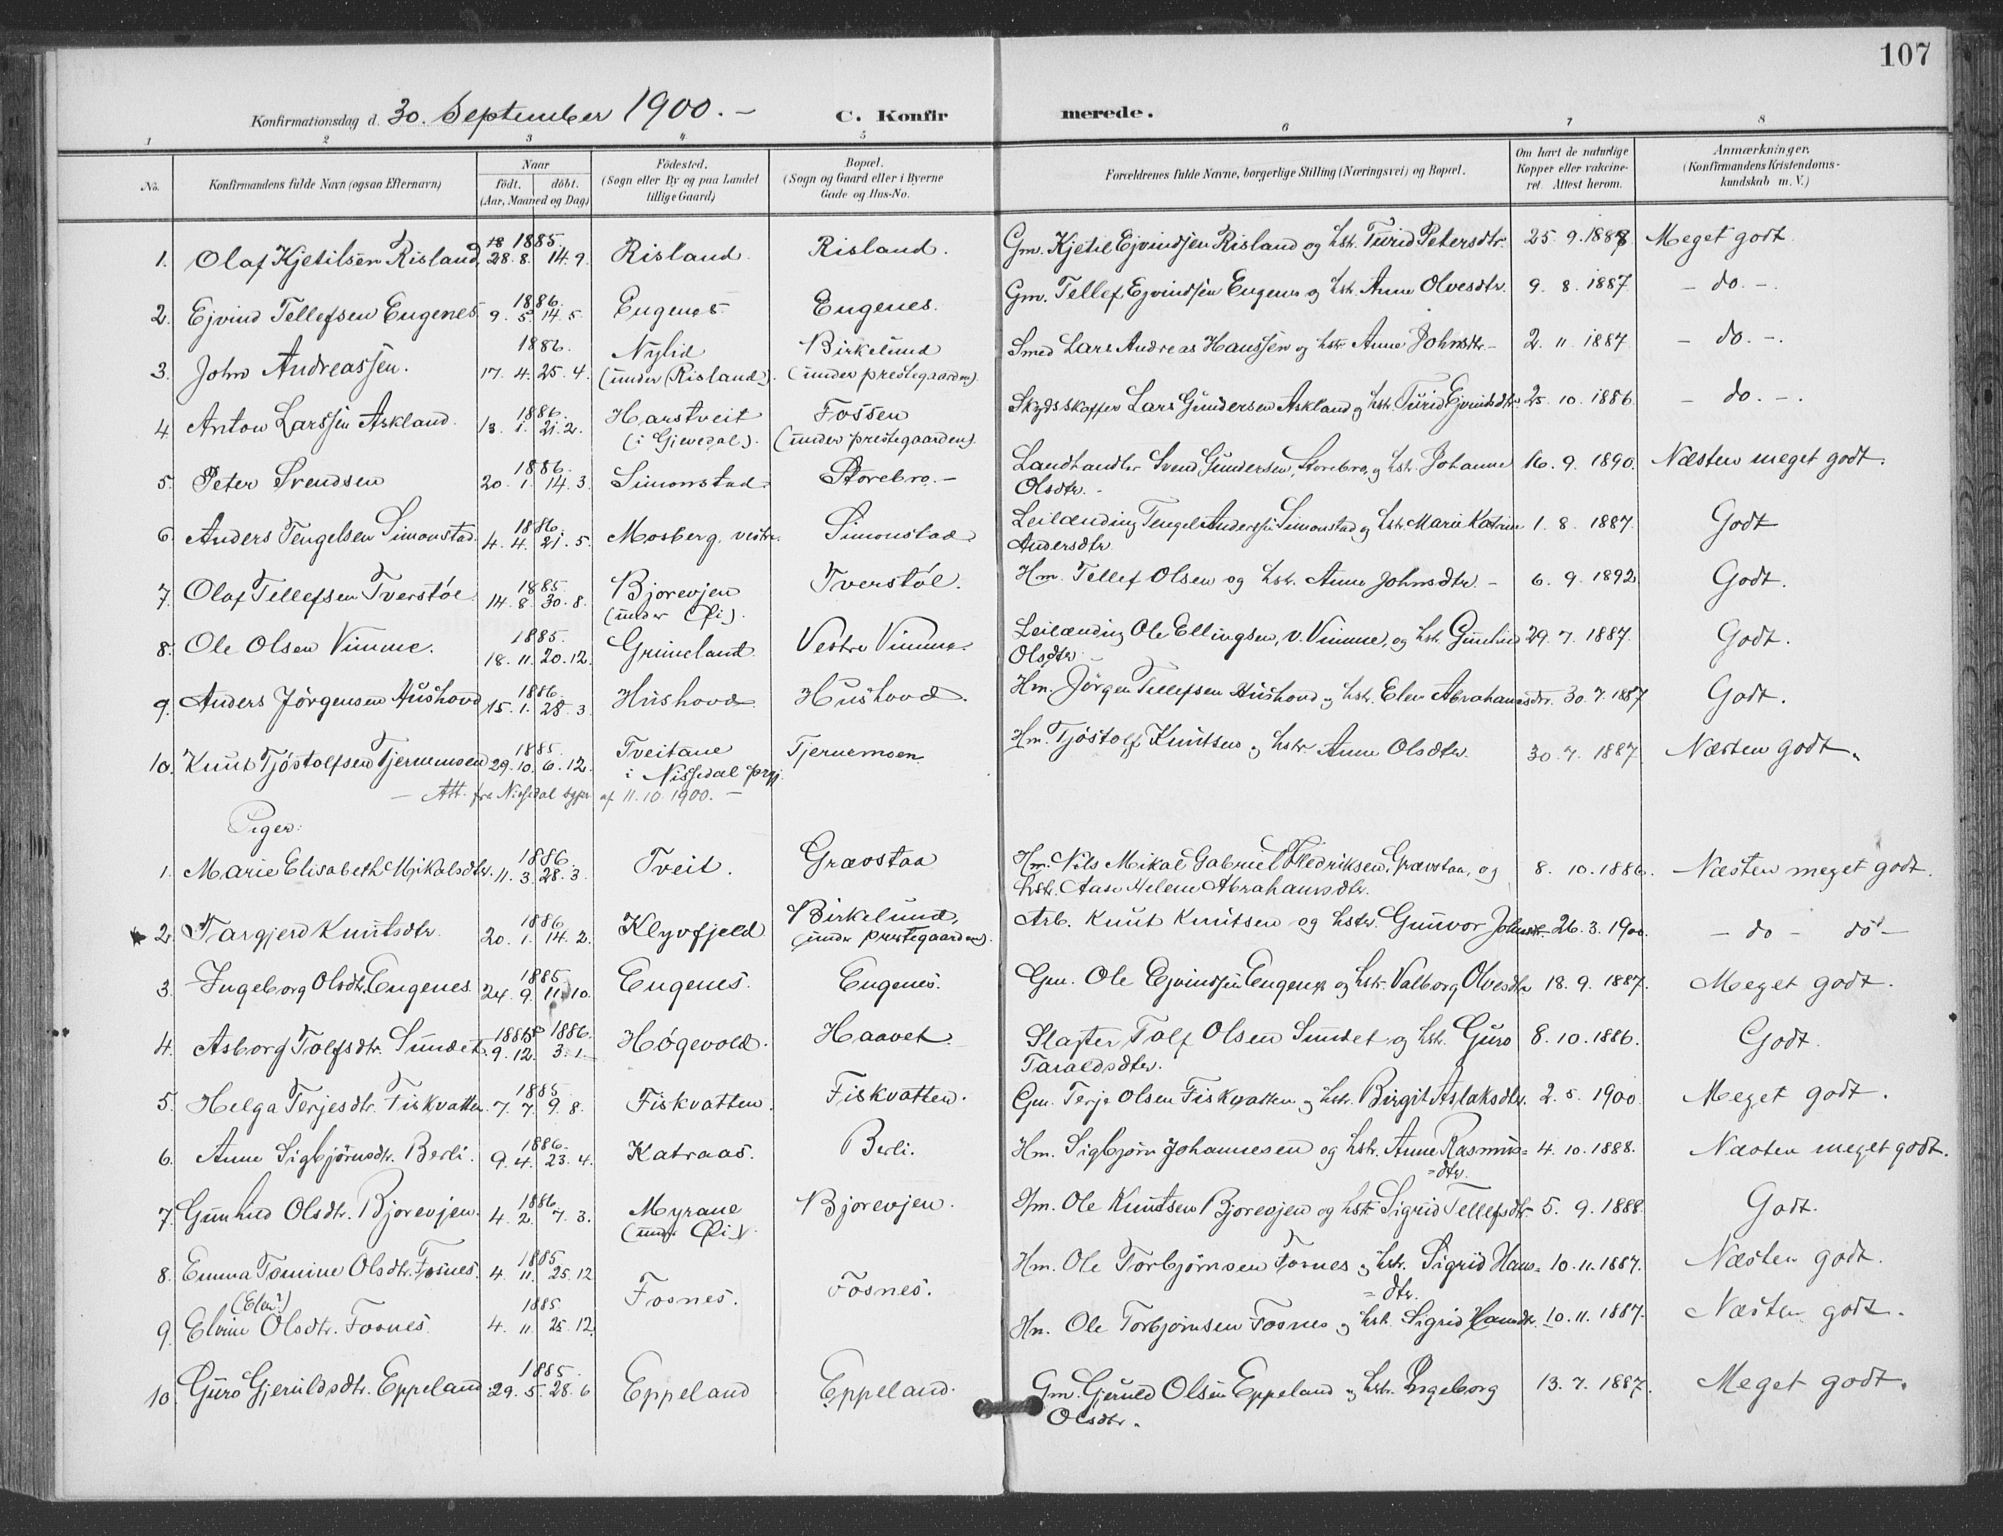 107
Konfirmationsdag d. 30. September 1900. — C. Konfirmerede.
1 2 3 4 5 6 7 8
No. Konfirmandens fulde Navn (ogsaa Efternavn) Naar født. døbt. (Aar, Maaned og Dag) Fødested. (Sogn eller By og paa Landet tillige Gaard) Bopæl. (Sogn og Gaard eller i Byerne Gade og Hus-No. Forældrenes fulde Navne, borgerlige Stilling (Næringsvei) og Bopæl. Om havt de naturlige Kopper eller vakcineret. Attest herom. Anmærkninger. (Konfirmandens Kristendomskundskab m. V.)
1. Olaf Kjetilsen Risland 1885 28. 8. 14. 9. Risland. Risland. Gm. Kjetil Ejvindsen Risland og Hstr. Turid Petersdtr. 25. 9. 1887 Meget godt
2. Ejvind Tellefsen Eugenes 1886. 9. 5. 14. 5. Eugenes Eugenes. Gm. Tellef Ejvindsen Eugenes og Hstr. Anne Olvesdtr. 9. 8. 1887 — do. —.
3. John Andreassen. 1886. 17. 4. 25. 4. Nylid (under Risland). Birkelund (under prestegaarden). Smed Lars Andreas Hanssen og Hstr. Anne Johnsdtr. — 2. 11. 1887 — do. —.
4 Anton Larssen Askland. 1886. 13. 1. 21. 2. Harstveit (i Gjevedal). Fossen (under prestegaarden). Skydsskaffer Lars Gundersen Askland og Hstr. Turid Ejvindsdtr. 25. 10. 1886 — do. —.
5. Peter Svendsen 1886. 20. 1. 14. 3. Simonstad. Storebro. — Landhandler Svend Gundersen, Storebro, og Hstr. Johanne Olsdtr. — 16. 9. 1890. Næsten meget godt.
6. Anders Tengelsen Simonstad. 1886. 4. 4. 21. 5. Mosberg, vestre. Simonstad Leilænding Tengel Andersen Simonstad og Hstr. Marie Katrine Andersdtr. 1. 8. 1887. Godt
7. Olaf Tellefsen Tverstøl 1885 14. 8. 30. 8. Bjorevjen (under Øi). Tverstøl. Hm. Tellef Olsen og Hstr. Anne Johnsdtr. — 6. 9. 1892 Godt.
8. Ole Olsen Vimme. 1885. 18. 11. 20. 12. Grimeland Vestre Vimme. Leilænding Ole Ellingsen, v. Vimme, og Hstr. Gunhild Olsdtr. 29. 7. 1887. Godt.
9. Anders Jørgensen Hushovd 1886. 15. 1. 28. 3. Hushovd Hushovd. Hm. Jørgen Tellefsen Hushovd og Hstr. Elen Abrahamsdtr. 30. 7. 1887 Godt.
10. Knut Tjøstolfsen Tjernemoen 1885. 29. 10. 6. 12. Tveitane i Nissedal prgj. Tjernemoen Hm. Tjøstolf Knutsen og Hstr. Anne Olsdtr. 30. 7. 1887 Næsten godt.
— Att. fra Nissedal sgpr. af 11. 10. 1900. —
Piger:
1. Marie Elisabeth Mikalsdtr. 1886. 11. 3. 28. 3. Tveit. Grævstaa Hm. Nils Mikal Gabriel Fredriksen, Grævstaa, og Hstr. Aase Helene Abrahamsdtr. 8. 10. 1886. Næsten meget godt.
2. Targjerd Knutsdtr. 1886 20. 1. 14. 2. Klyvfjeld Birkelund, (under prestegaarden). Arb. Knut Knutsen og Hstr. Gunvor Johnsdtr. 26. 3. 1900 — do — do —
3. Ingeborg Olsdtr. Eugenes. 1885. 24. 9. 11. 10. Eugenes. Eugenes. Gm. Ole Ejvindsen Eugenes og Hstr. Valborg Olvesdtr. 18. 9. 1887. Meget godt.
4. Asborg Tolfsdtr. Sundet. 1885 1886. 9. 12. 3. 1. Høgevold. Haavet. Slagter Tolf Olsen Sundet og Hstr. Guro Taraldsdtr. 8. 10. 1886. Godt.
5. Helga Terjesdtr. Fiskvatten. 1885 7. 7. 9. 8. Fiskvatten. Fiskvatten. Gm. Terje Olsen Fiskvatten og Hstr. Birgit Aslaksdtr. 2. 5. 1900 Meget godt.
6. Anne Sigbjørnsdtr. Berli. 1886. 9. 4. 23. 4. Katraas. Berli. Hm. Sigbjørn Johannesen og Hstr. Anne Rasmus= =dtr. 4. 10. 1888. Næsten meget godt.
7. Gunhild Olsdtr. Bjorevjen. 1886. 4. 2. 7. 3. Myrane (under Øi). Bjorevjen. Hm. Ole Knutsen Bjorevjen og Hstr. Sigrid Tellefsdtr. 5. 9. 1888. Godt.
8. Emma Tomine Olsdtr. Fosnes. 1885 4. 11. 25. 12 Fosnes. Fosnes. Hm. Ole Torbjørnsen Fosnes og Hstr. Sigrid Hans= =dtr. 10. 11. 1887. Næsten godt.
9. Elvine Olsdtr. Fosnes. 1885. 4. 11. 25. 12. Hm. Ole Torbjørnsen Fosnes og Hstr. Sigrid Hansdtr. 10. 11. 1887. Næsten godt.
10. Guro Gjeruldsdtr. Eppeland 1885. 29. 5. 28. 6 Eppeland Eppeland. Gm. Gjeruld Olsen Eppeland og Hstr. Ingeborg Olsdtr. 13. 7. 1887. Meget godt.